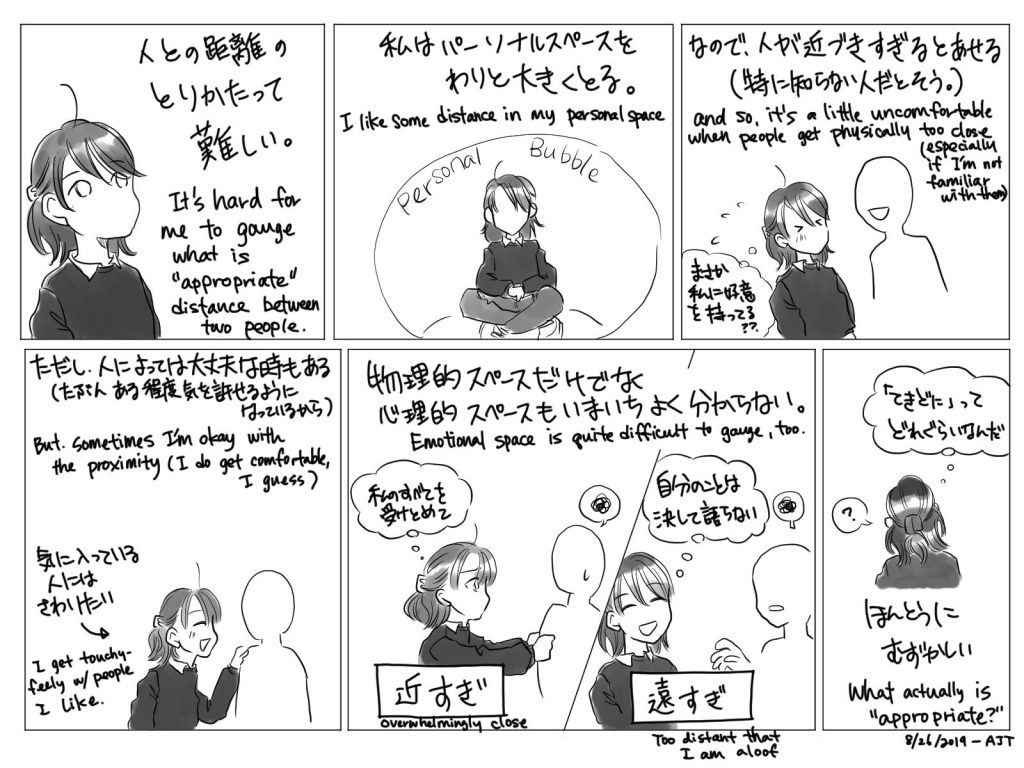 人との距離の
とりかたって
難しい。
It's hard for
me to gauge
what is
"appropriate"
distance between
two people.
私はパーソナルスペースを
わりと大きくとる。
I like some distance in my personal space
Personal Bubble
なので、人が近づきすぎるとあせる
(特に知らない人だとそう。)
and so, it's a little uncomfortable
when people get physically too close
(especially
if I'm not
familiar
with them)
まさか
私に好意
を持ってる
??
ただし、人によっては大丈夫な時もある
(たぶん ある程度気を許せるように
なっているから)
But sometimes I'm okay with
the proximity (I do get comfortable,
I guess)
気に入っている
人には
さわりたい
I get touchy-
feely w/ people
I like.
物理的スペースだけでなく
心理的スペースもいまいちよく分からない。
Emotional space is quite difficult to gauge, too.
私のすべてを
受けとめて
近すぎ
overwhelmingly close
自分のことは
決して語らない
遠すぎ
Too distant that
I am aloof
「てきどに」って
どれぐらいなんだ
?
ほんとうに
むずかしい
What actually is
"appropriate?"
8/26/2019 - AJT